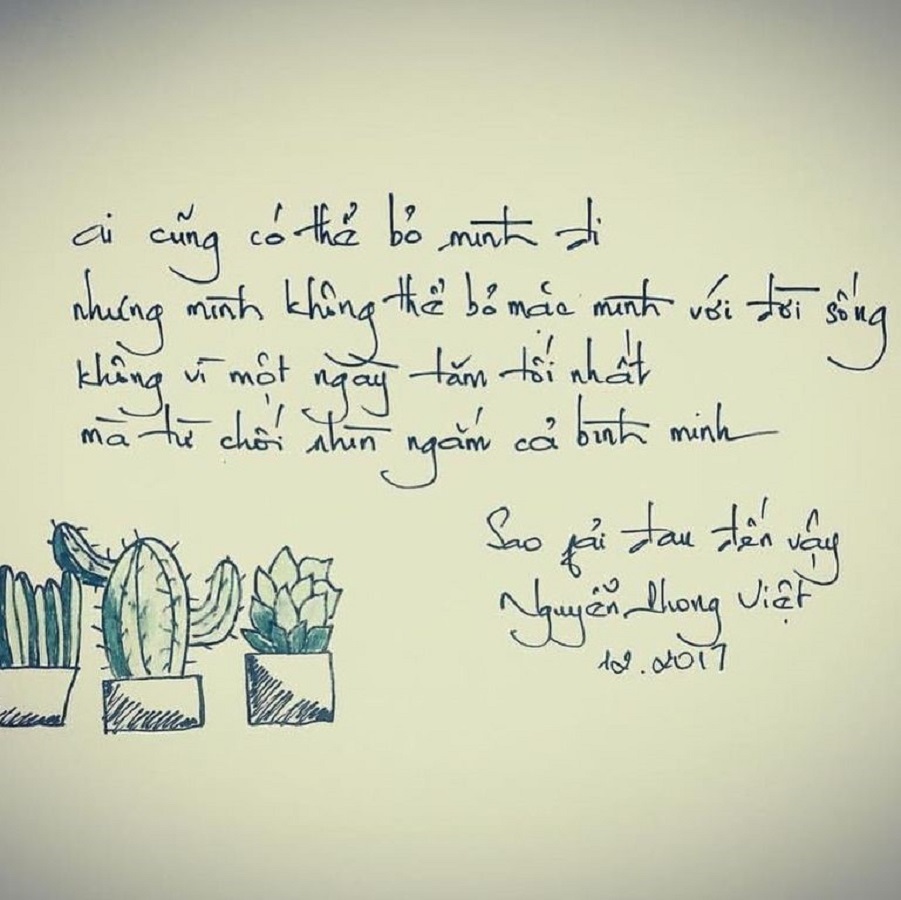 ai cũng có thể bỏ mình đi
nhưng mình không thể bỏ mặc mình với đời sống
không vì một ngày tăm tối nhất
mà từ chối nhìn ngắm cả bình minh
Sao fải đau đến vậy
Nguyễn Phong Việt
12.2017